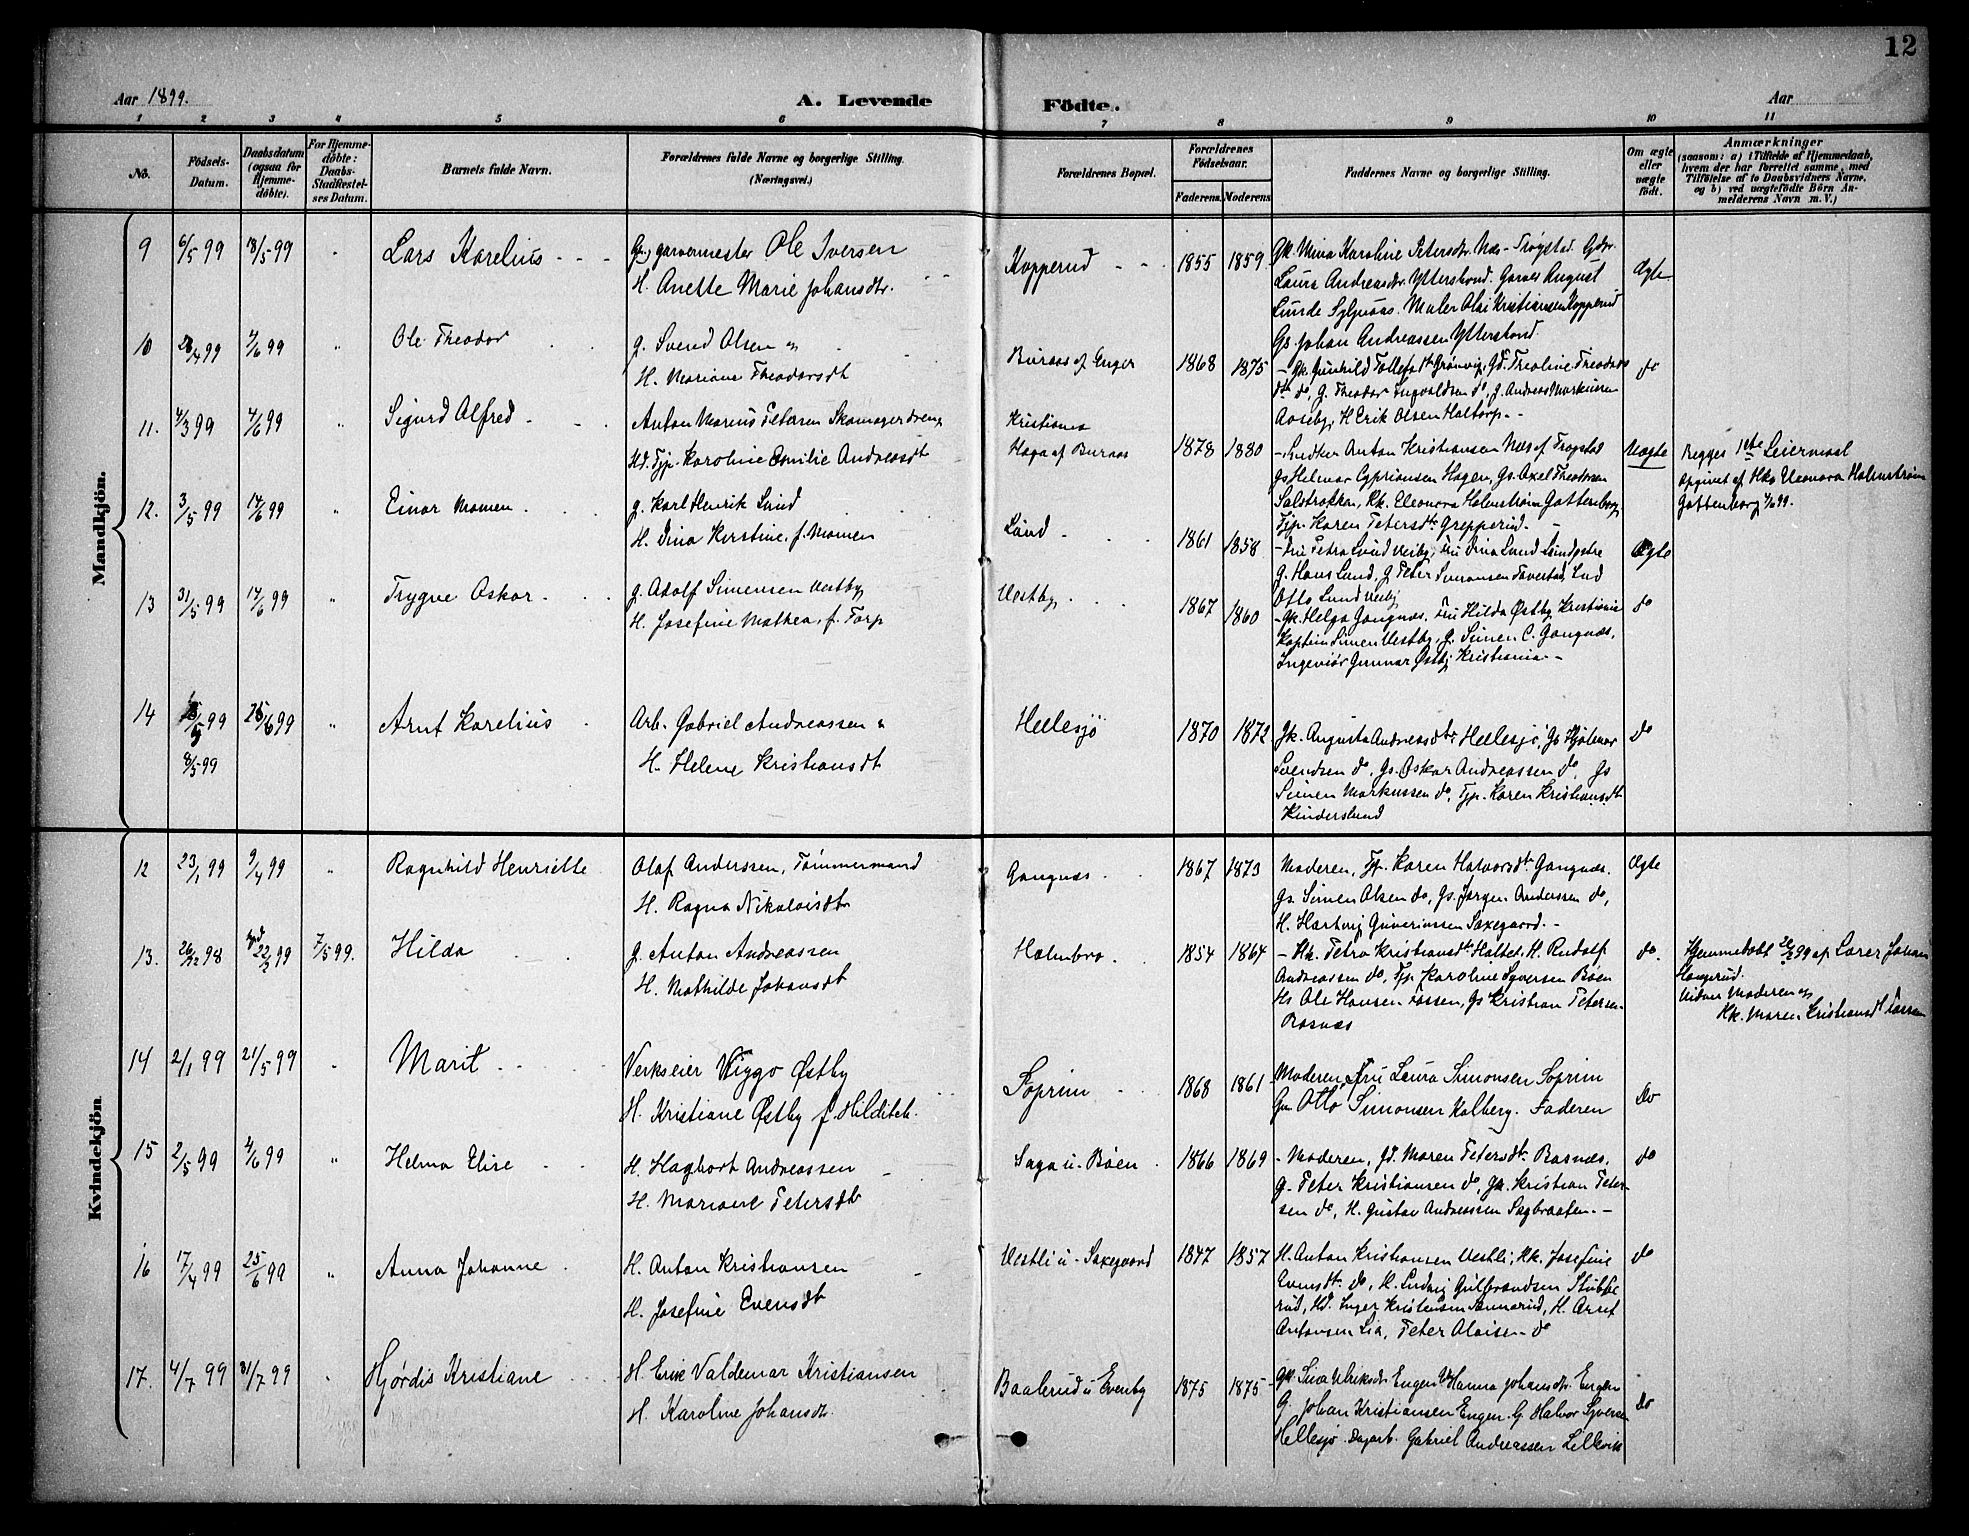 12
Aar 1899.
A. Levende Födte.
Aar
1 2 3 4 5 6 7 8 9 10 11
No.
Födsels-
Datum.
Daabsdatum
(ogsaa for
Hjemme-
döbte).
For Hjemme-
döbte:
Daabs-
Stadfæstel-
ses Datum.
Barnets fulde Navn.
Forældrenes fulde Navne og borgerlige Stilling.
(Næringsvei.)
Forældrenes Bopæl.
Forældrenes
Födselsaar.
Faderens. Moderens.
Faddernes Navne og borgerlige Stilling.
Om ægte
eller
uægte
født.
Anmærkninger
(saasom: a) i Tilfælde af Hjemmedaab,
hvem der har forrettet samme, med
Tilföielse af to Daabsvidners Navne,
og b) ved uægtefödte Börn An-
melderens Navn m.V.)
Mandkjön.
9 6/5 99 18/5 99 " Lars Karelius
garvermester Ole Iversen
H. Anette Marie Johansdtr.
Kopperud 1855 1859
Gk. Mina Karoline Petersdtr. Næs - Trøgstad. Gdr.
Laura Andreasdtr. Ytterstond. Garver August
Lunde Sylpraas. Maler Olai Kristiansen Kopperud
Gs. Johan Andreassen Ytterstond.
Ægte
10 4/6 99 " Ole Theodor
g. Svend Olsen
H. Mariane Theodorsdt
Buraas af Enger 1868 1875
- Gk. Gunhild Tollefsdtr Grønvig, Gd. Theoline Theodors
dtr do, g. Theodor Ingvaldsen do, g. Andreas Markussen
Aaseby, H Erik Olsen Haltorp. -
do
11. 4/3 99 4/6 99 " Sigurd Alfred
Anton Marius Petersen Skomagerdreng
Hd. Tjp. Karoline Emilie Andreasdt
Kristiania
Haga af Buraas 1878 1880
Anton Kristiansen Næs af Trøgstad
gs Helmar Cypriansen Hagen, Gs. Axel Theodorsen
Kk. Eleonora Holmstrøm Gottenborg,
Tjp. Karen Petersdtr Grepperud. -
Uægte
Begges 1ste Leiermaal
Opgivet af Hk. Eleonora Holmstrøm
Gottenborg 4/6 99.
12. 3/5 99 14/6 99 " Einar Momen
g. Karl Henrik Lund
H. Dina Kirstine, f. Momen
Lund 1861 1858
- Fru Petra Lund Veiby, Fru Dina Lund
g. Hans Lund, g Peter Simonsen Taverstad,
Otto Lund Veiby
Ægte
13 31/5 99 14/6 99 " Trygve Oskar
g. Adolf Simensen Vestby
H. Josefine Mathea, f. Torp
Vestby 1867 1860
- Gk. Helga Gangnæs. Fru Hilda Østby Kristiania
Kaptein Simen Vestby, g. Simen C. Gangnæs,
Ingeniør Gunnar Østby Kristiania. -
do
14 8/5 99 25/6 99 " Arnt Karelius
Arb. Gabriel Andreassen
H. Helene Kristiansdt
Hellesjø 1870 1872
Gk. Augusta Andreasdtr Hellesjø, Gs Hjalmar
Svendsen do, Gs. Oskar Andreassen do, Gs
Simen Markussen do, Tjp. Karen Kristiansdt
Kinderslund
do
Kvindekjön
12 23/1 99 9/4 99 " Ragnhild Henriette
Olaf Anderssen, Tømmermand
H. Ragna Nikolaisdt
Gangnæs 1867 1873
Moderen, Tjp. Karen Halvorsdt. Gangnæs.
Gs. Simen Olsen do, Gs. Jørgen Anderssen do,
H. Hartvig Gunerussen Saxegaard. -
Ægte
13. 26/12 98 22/3 99 7/5 99. Hilda
g. Anton Andreassen
H. Mathilde Johansdt
Holmbro 1854 1864
- Hk. Petra Kristiansdt Haltet, H. Rudolf
Andreassen do, Tjp. Karoline Syversen Bøen
Hs Ole Hansen Fossen, Gs Kristian Petersen
Basnæs
do.
Hjemmedøbt 26/2 99 af Lærer Johan
Haugerud.
Vidner Moderen og
Hk. Maren Kristiansdt Fossen
14 2/1 99 21/5 99 " Marit
Verkseier Viggo Østby
H. Kristiane Østby f Hilditch
Soprim 1868 1861
Moderen, Fru Laura Simonsen Soprim
Otto Simonsen Kalberg. Faderen
Do
15 2/5 99 4/6 99 " Helma Elise
H. Hagbart Andreassen
H. Mariane Petersdt
Saga u. Bøen 1866 1869
- Moderen, Gd. Maren Petersdt. Basnæs.
g. Peter Kristiansen do, Gk. Kristian Peter-
sen do, H. Gustav Andreassen Sagbraaten. -
do
16 17/4 99 25/6 99 " Anna Johanne
H. Anton Kristiansen
H. Josefine Evensdt
Vestli u. Saxegaard 1847 1857
H. Anton Kristiansen Vestli, Hk. Josefine
Evensdt. do, H. Ludvig Gulbrandsen Stubbe
rud, Hd. Inger Kristensen Sannerud, H. Arnt
Antonsen Lia, Peter Olaisen do
do
17. 4/7 99 31/7 99 " Hjørdis Kristiane
H. Erik Valdemar Kristiansen
H. Karoline Johansdt.
Baalerud u Evenby 1875 1875
Engen Hanna Johansdtr. Engen
G. Johan Kristiansen Engen. G. Halvor Syversen
Hellesjø. Dagarb. Gabriel Andreassen Lillevik
do